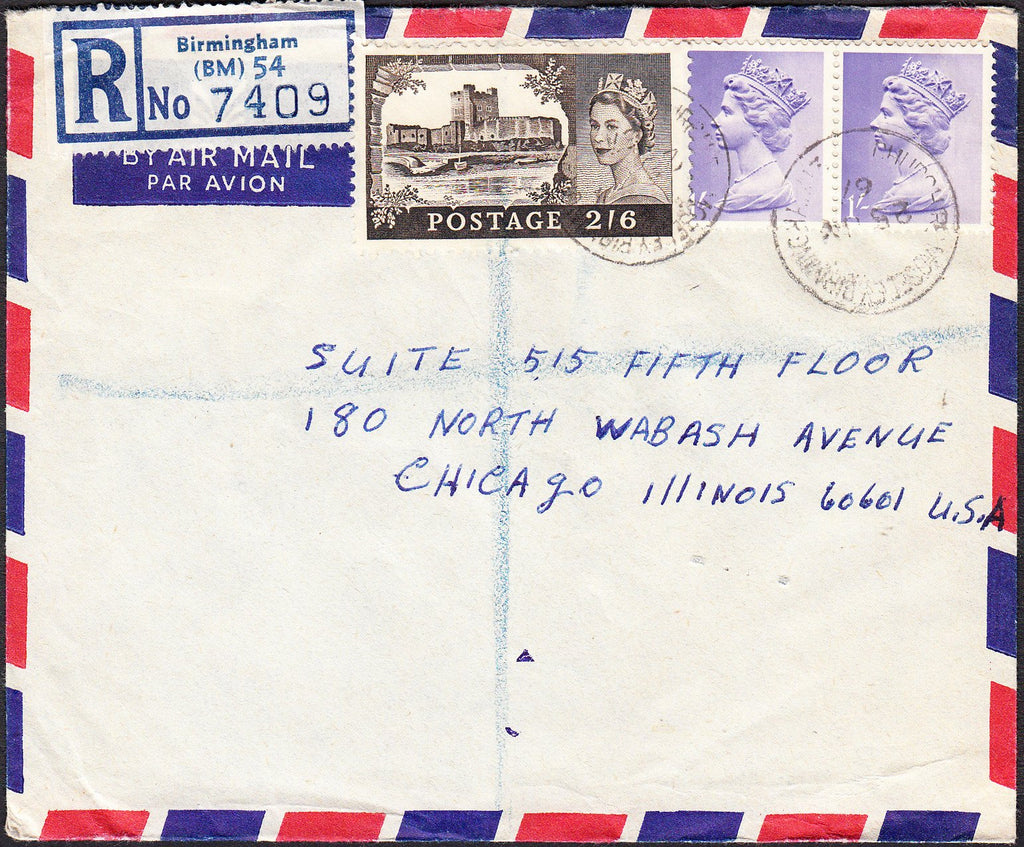 R
Birmingham
(BM) 54
No 7409
BY AIR MAIL
PAR AVION
POSTAGE 2/6
1/-
SUITE 515 FIFTH FLOOR
180 NORTH WABASH AVENUE
CHICAgO IllINOIS 60601 U.S.A